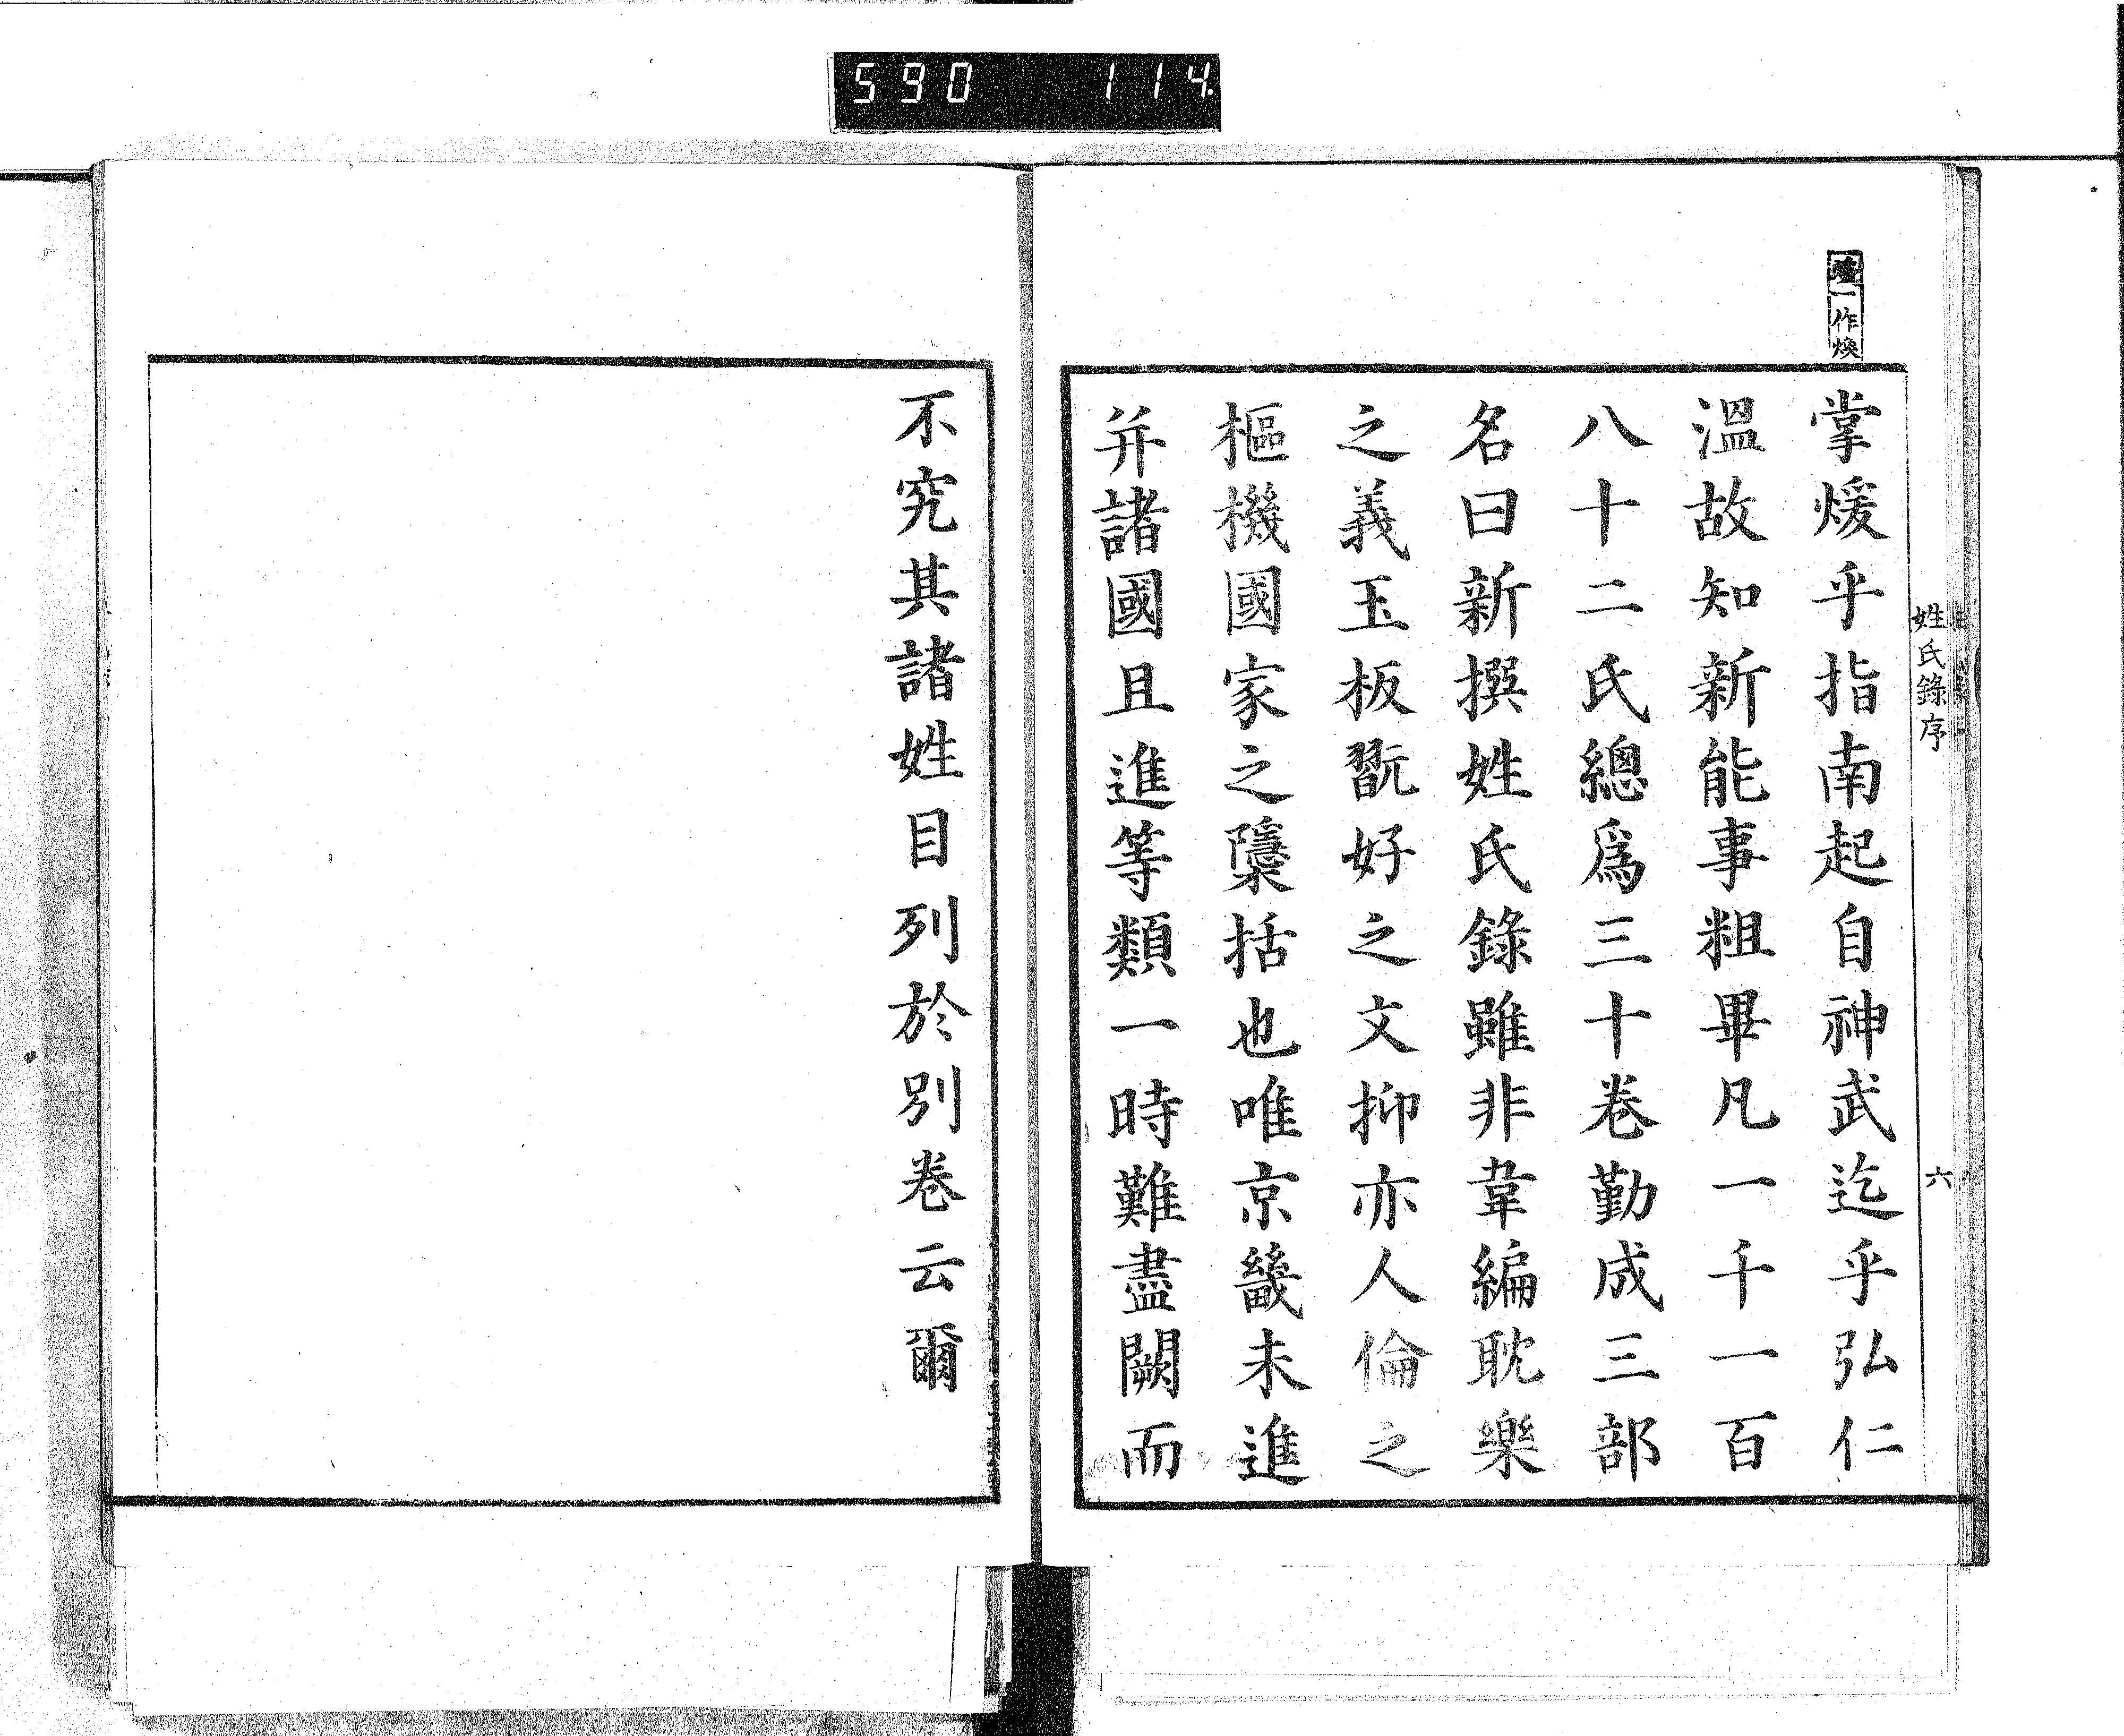 590 114.
一作煥
姓氏錄序
六
掌煖乎指南起自神武迄乎弘仁
溫故知新能事粗畢凡一千一百
八十二氏總爲三十卷勤成三部
名曰新撰姓氏錄雖非韋編耽樂
之義玉板翫好之文抑亦人倫之
樞機國家之隱括也唯京畿未進
并諸國且進等類一時難盡闕而
不究其諸姓目列於別卷云爾